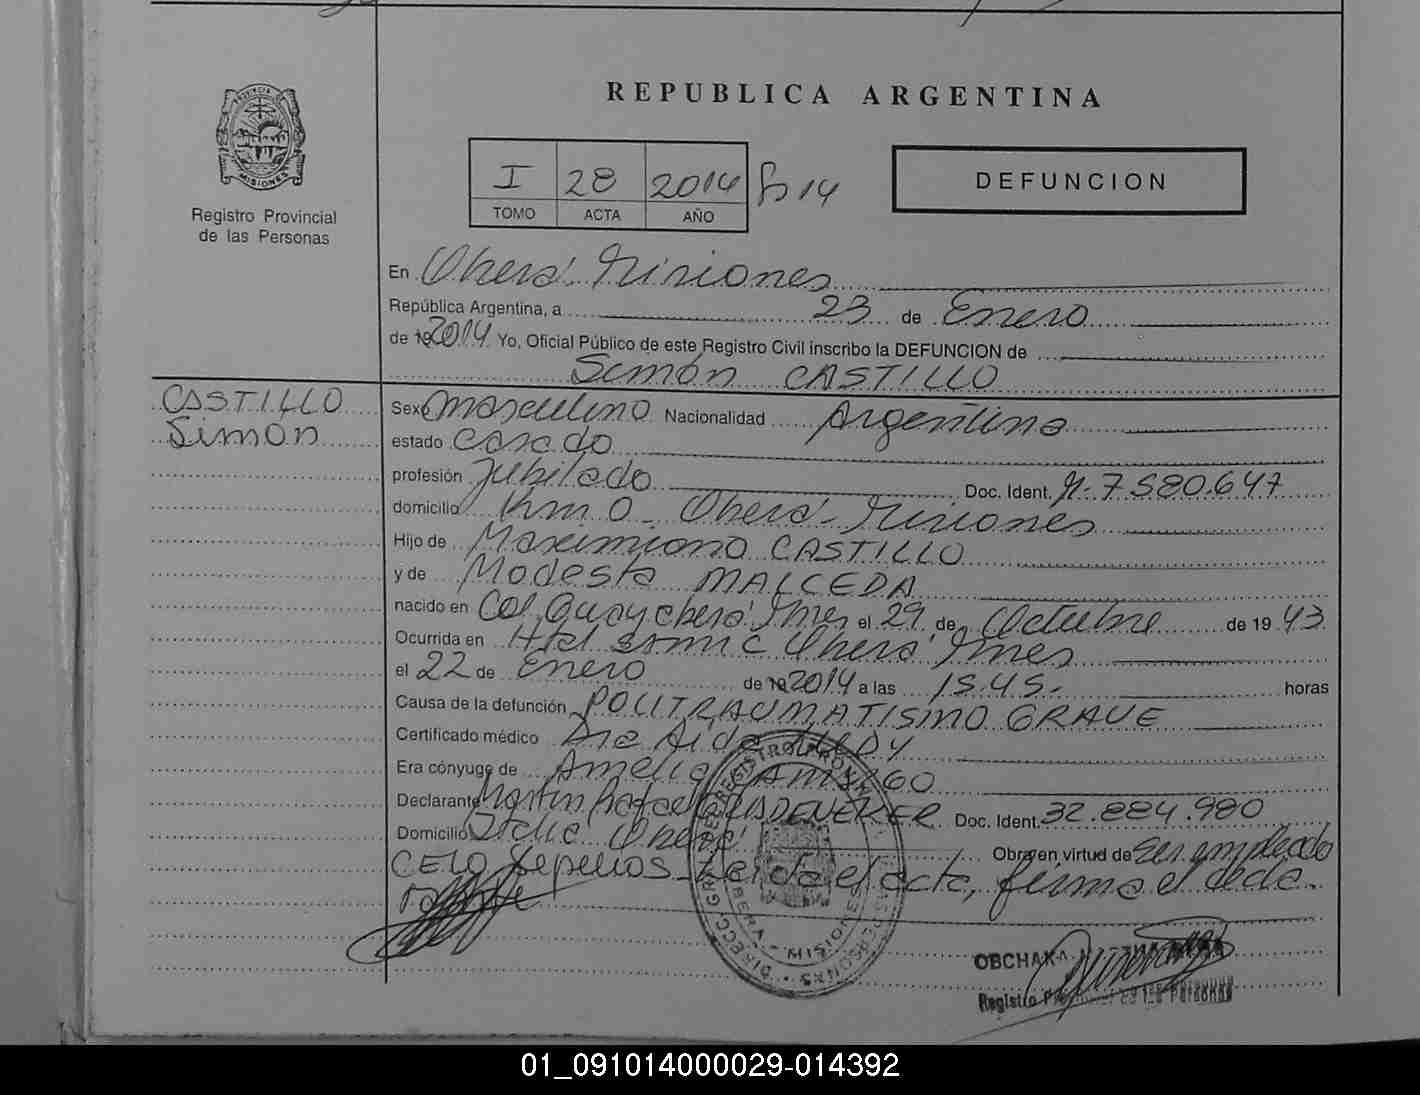 REPUBLICA ARGENTINA
PROVINCIA DE
MISIONES
Registro Provincial
de las Personas
I 28 2014 Fo 14
TOMO ACTA AÑO
DEFUNCION
En Oberá Misiones
República Argentina, a 23 de Enero
de 19 2014 Yo, Oficial Público de este Registro Civil inscribo la DEFUNCION de
Simón CASTILLO
CASTILLO
Simón
Sexo masculino Nacionalidad Argentina
estado casado
profesión Jubilado Doc. Ident. N. 7.580.647
domicilio Km 0 - Oberá - Misiones
Hijo de Maximiano CASTILLO
y de Modesta MALCEDA
nacido en Col Guaycherá Mnes el 29 de Octubre de 19 43
Ocurrida en Htal SAMIC Oberá Mnes
el 22 de Enero de 19 2014 a las 15.45. horas
Causa de la defunción POLITRAUMATISMO GRAVE
Certificado médico Dra Aida
Era cónyuge de Amelia
Declarante Martín Rafael Doc. Ident. 32.884.980
Domicilio Oberá Obra en virtud de ser empleado
CELO Sepelios - Leída el acta, firma el decla.
OBCHAK
Registro de las Personas
01_091014000029-014392